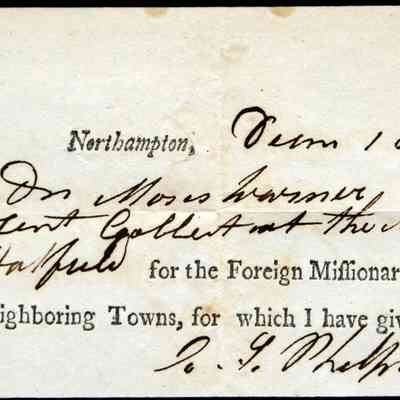 Northampton, Decm 1
Dn Moses Warner,
Cent Collect at the
Hatfield for the Foreign Miſſionar
ighboring Towns, for which I have giv
Phelp